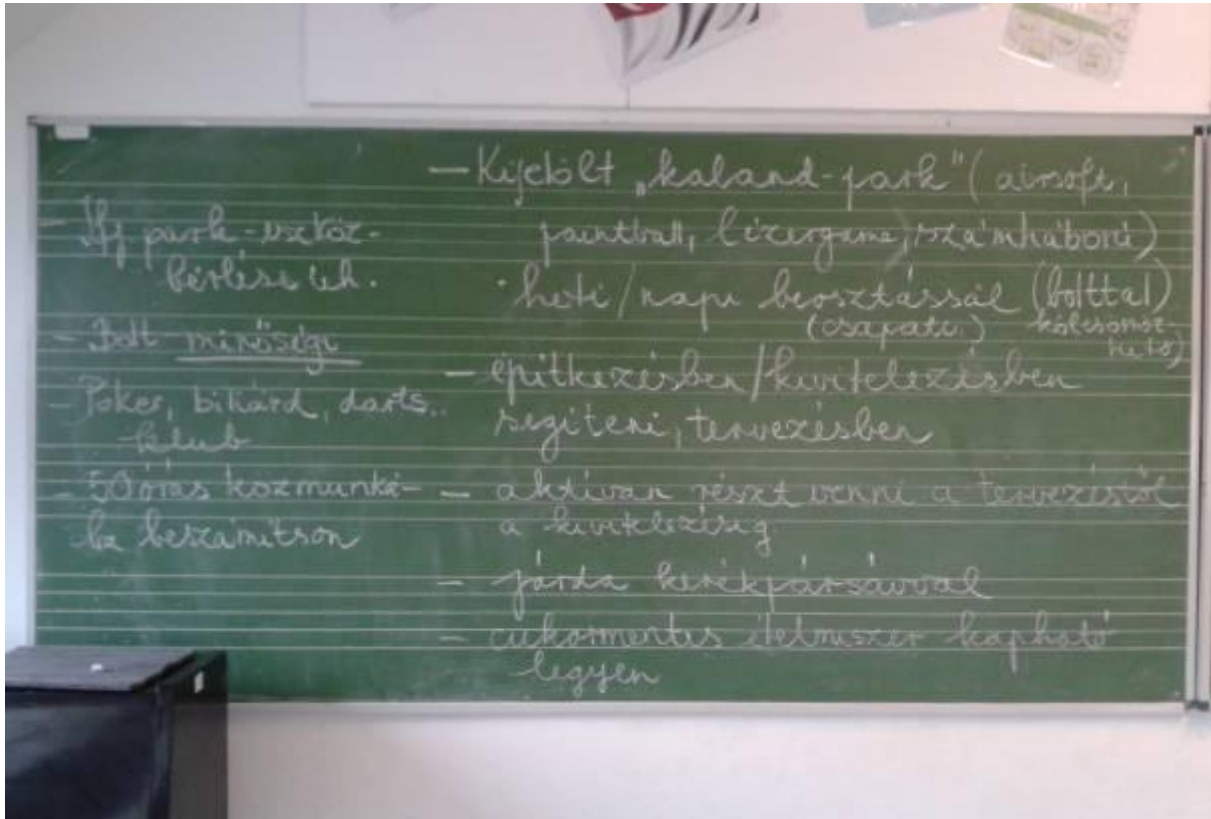 - Ifj park-eszköz-
bérlés
- Bolt minőségi
- Póker, biliárd, darts..
klub
- 50 órás közmunká-
ba beszámítson
- Kijelölt „kaland-park" (airsoft,
paintball, lézergame, számháború)
• heti/napi beosztással (bolttal)
(csapat) kölcsönöz-
hető)
- építkezésben/kivitelezésben
segíteni, tervezésben
- aktívan részt venni a tervezéstől
a kivitelezésig
- járda kerékpársávval
- cukormentes élelmiszer kapható
legyen